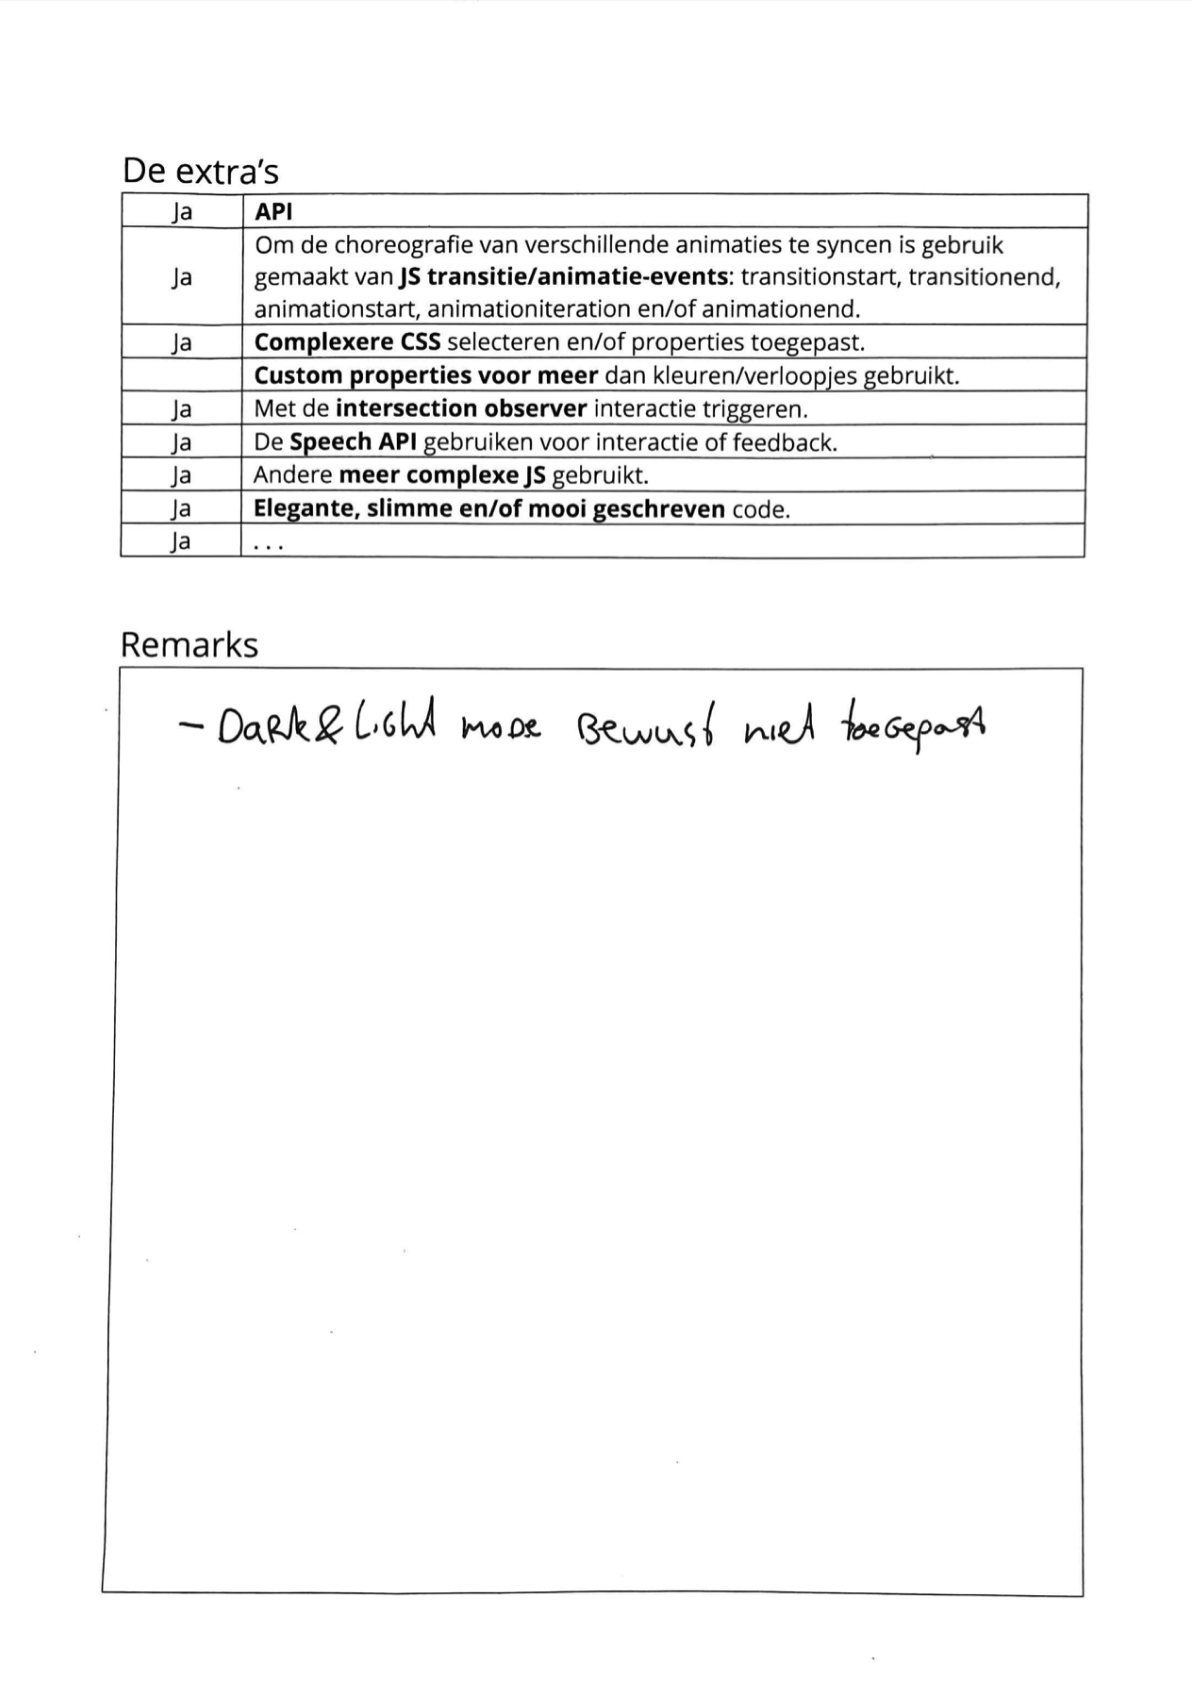 De extra's
Ja API
Om de choreografie van verschillende animaties te syncen is gebruik
Ja gemaakt van JS transitie/animatie-events: transitionstart, transitionend,
animationstart, animationiteration en/of animationend.
Ja Complexere CSS selecteren en/of properties toegepast.
Custom properties voor meer dan kleuren/verloopjes gebruikt.
Ja Met de intersection observer interactie triggeren.
Ja De Speech API gebruiken voor interactie of feedback.
Ja Andere meer complexe JS gebruikt.
Ja Elegante, slimme en/of mooi geschreven code.
Ja . . .
Remarks
- Dark & Light mode Bewust niet toegepast